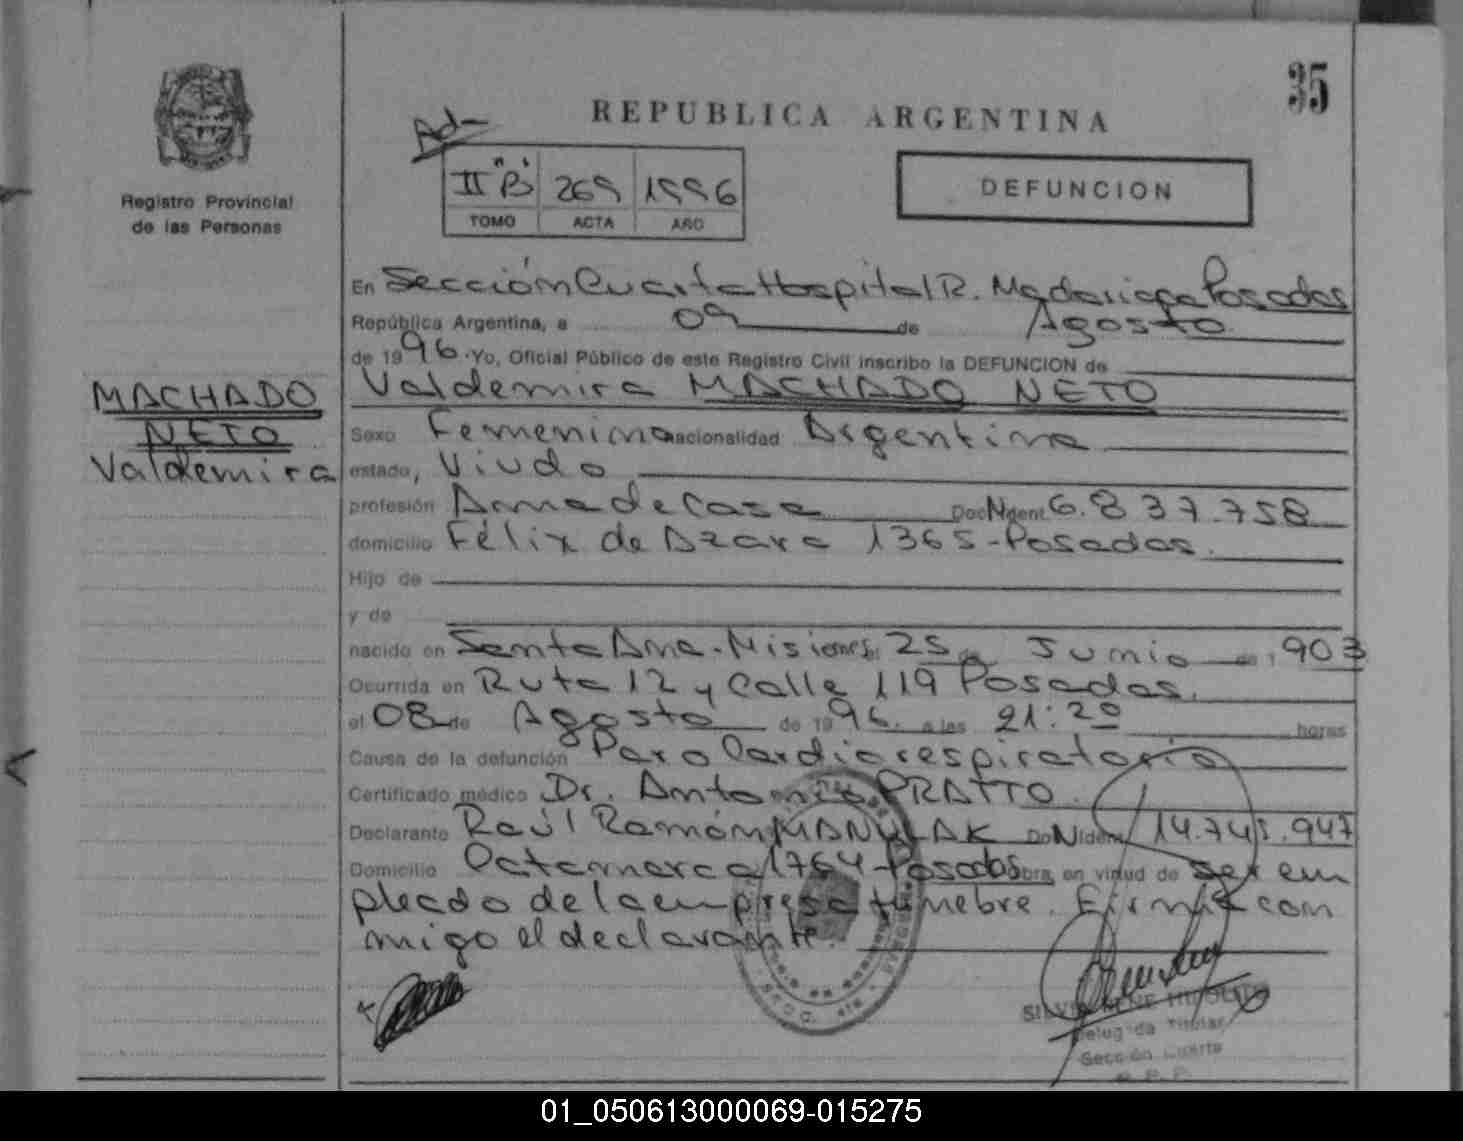 35
REPUBLICA ARGENTINA
Ad-
II "B" 269 1996
TOMO ACTA AÑO
DEFUNCION
Registro Provincial
de las Personas
MACHADO
NETO
Valdemira
En Sección Cuarta Hospital R. Madariaga Posadas
República Argentina, a 09 de Agosto
de 1996. Yo, Oficial Público de este Registro Civil inscribo la DEFUNCION de
Valdemira MACHADO NETO
Sexo Femenino nacionalidad Argentina
estado, Viuda
profesión Ama de Casa Doc N ident 6.837.758
domicilio Félix de Azara 1365 - Posadas.
Hijo de
y de
nacido en Santa Ana - Misiones 25 de Junio de 1.903
Ocurrida en Ruta 12 y Calle 119 Posadas.
el 08 de Agosto de 1996. a las 21:20 horas
Causa de la defunción Paro Cardiorespiratorio
Certificado médico Dr. Antonio PRATTO.
Declarante Raúl Ramón MANULAK Do N Ident 14.745.947
Domicilio Catamarca 1764 - Posadas obra en virtud de ser em
pleado de la empresa fúnebre. Firma con
migo el declarante.
SILVIA RENE HIPOLITO
Delegada Titular
Sección Cuarta
R. P. P.
01_050613000069-015275